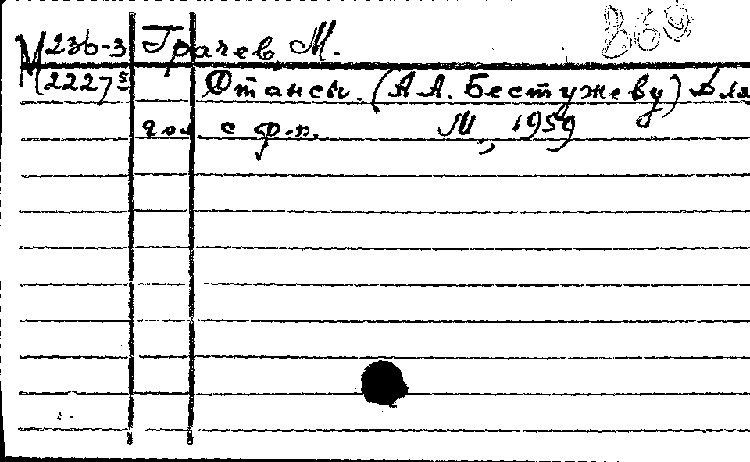 М 236-3 Грачев М. 869
22275 Стансы. (А А. Бестужеву) Для
гол. с ф-п. М., 1959